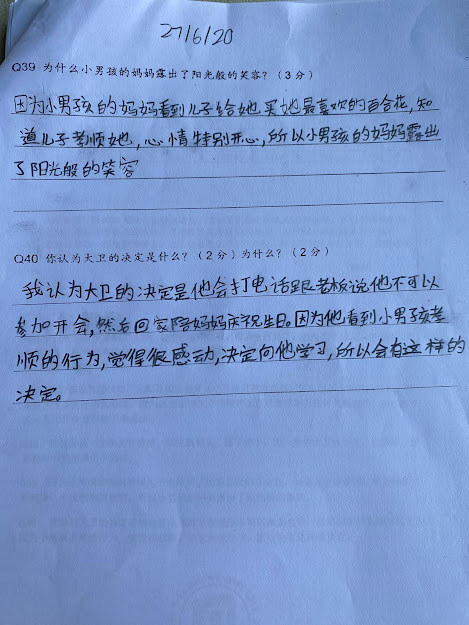 27/6/20
Q39 为什么小男孩的妈妈露出了阳光般的笑容？（3 分）
因为小男孩的妈妈看到儿子给她买她最喜欢的百合花，知
道儿子孝顺她，心情特别开心，所以小男孩的妈妈露出
了阳光般的笑容
Q40 你认为大卫的决定是什么？（2 分）为什么？（2 分）
我认为大卫的决定是他会打电话跟老板说他不可以
参加开会，然后回家陪妈妈庆祝生日。因为他看到小男孩孝
顺的行为，觉得很感动，决定向他学习，所以会有这样的
决定。